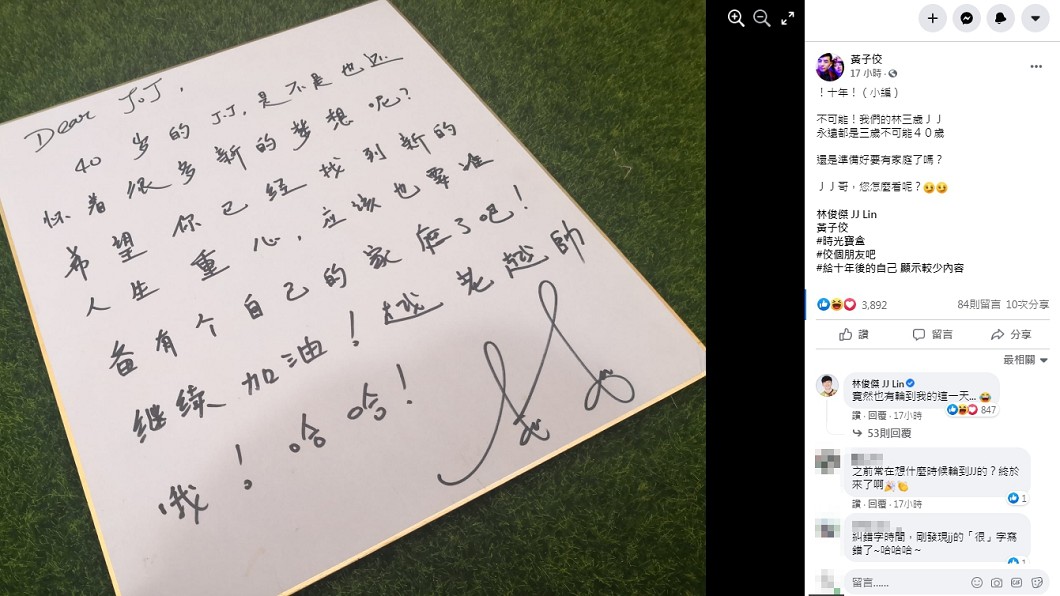 Dear J.J,
40 岁的 J.J, 是不是也
怀着很多新的梦想呢?
希望你已经找到新的
人生重心,应该也要准
备有个自己的家庭了吧!
继续加油!越老越帥
哦!哈哈!
黃子佼
17 小時
！十年！（小編）
不可能！我們的林三歲ＪＪ
永遠都是三歲不可能４０歲
還是準備好要有家庭了嗎？
ＪＪ哥，您怎麼看呢？😏😏
林俊傑 JJ Lin
黃子佼
#時光寶盒
#佼個朋友吧
#給十年後的自己 顯示較少內容
3,892 84則留言 10次分享
讚 留言 分享
最相關
林俊傑 JJ Lin
竟然也有輪到我的這一天... 😂
847
讚 · 回覆 · 17小時
53則回覆
之前常在想什麼時候輪到JJ的？終於
來了啊🎉👏
1
讚 · 回覆 · 17小時
糾錯字時間，剛發現jj的「很」字寫
錯了~哈哈哈~
1
留言......
GIF